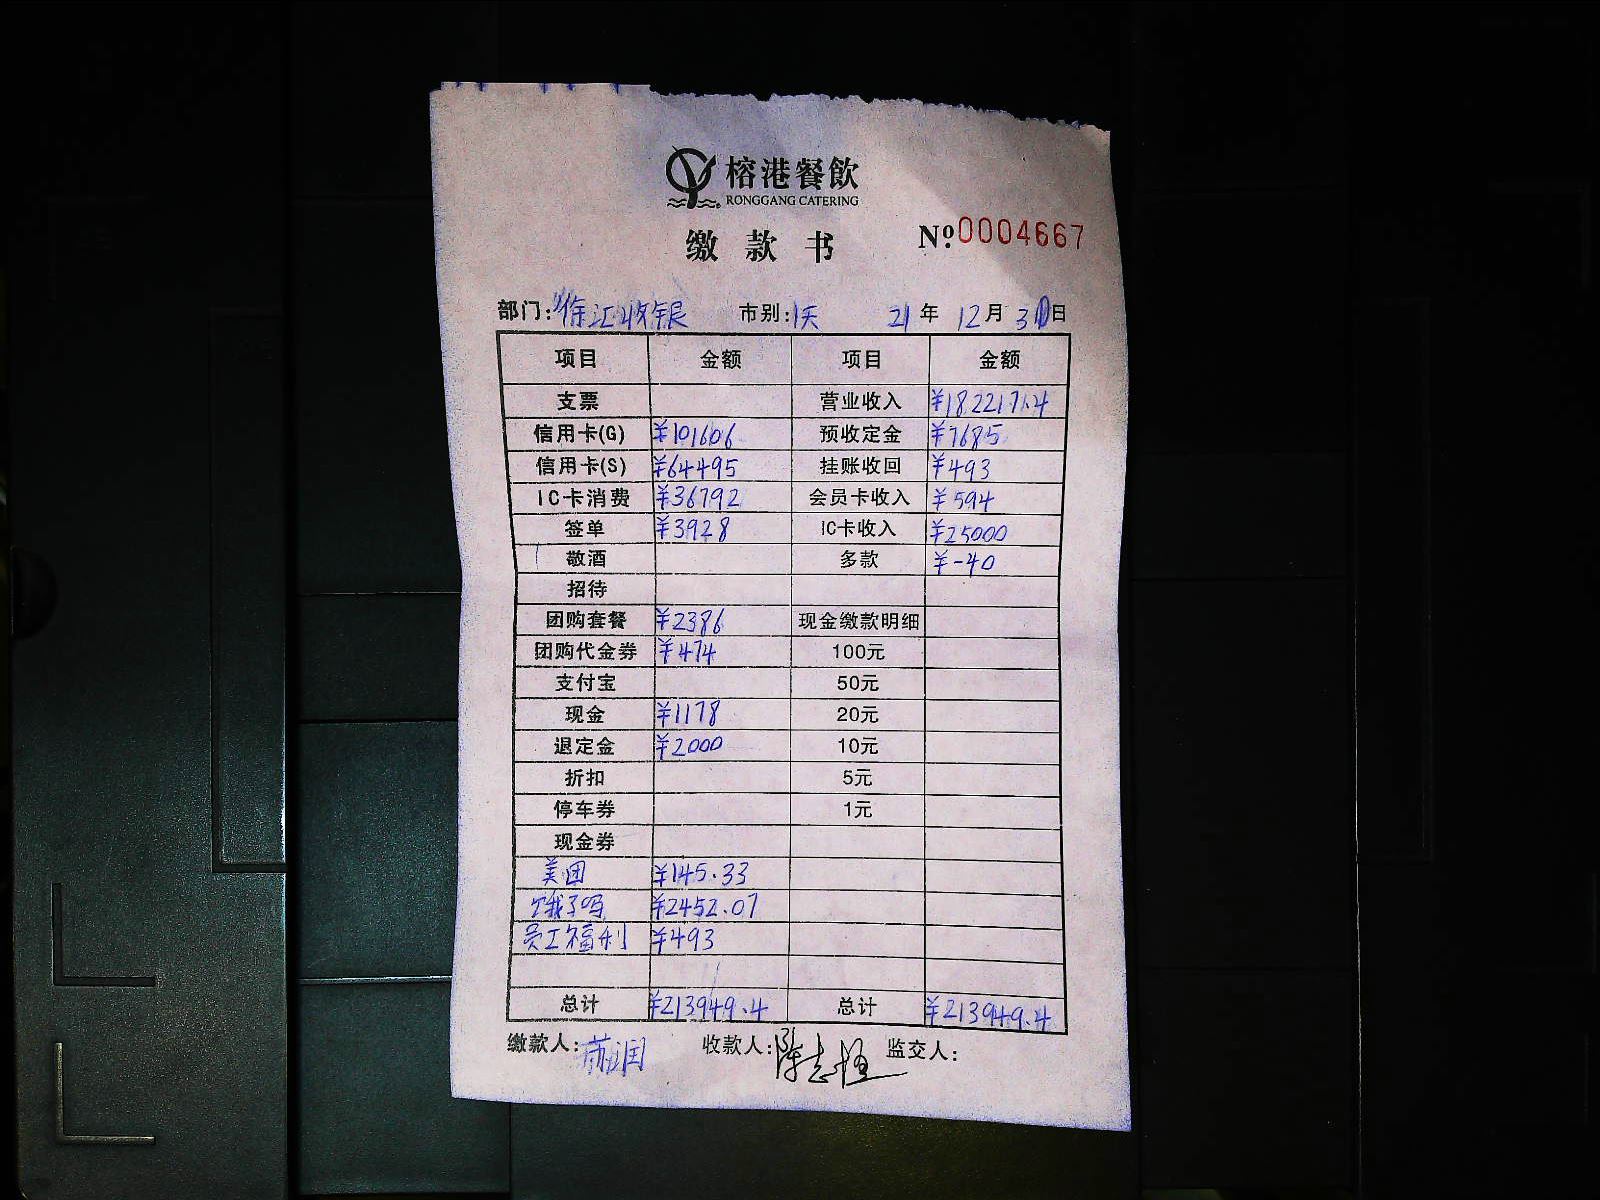 榕港餐飲
RONGGANG CATERING
缴款书 №0004667
部门:徐汇收银 市别:1天 21年12月31日
项目 金额 项目 金额
支票 营业收入 ¥182217.4
信用卡(G) ¥101606 预收定金 ¥7685
信用卡(S) ¥64495 挂账收回 ¥493
IC卡消费 ¥36792 会员卡收入 ¥594
签单 ¥3928 IC卡收入 ¥25000
敬酒 多款 ¥-40
招待
团购套餐 ¥2386 现金缴款明细
团购代金券 ¥474 100元
支付宝 50元
现金 ¥1178 20元
退定金 ¥2000 10元
折扣 5元
停车券 1元
现金券
美团 ¥145.33
饿了吗 ¥2452.07
员工福利 ¥493
总计 ¥215949.4 总计 ¥215949.4
缴款人: 收款人:陈志 监交人: